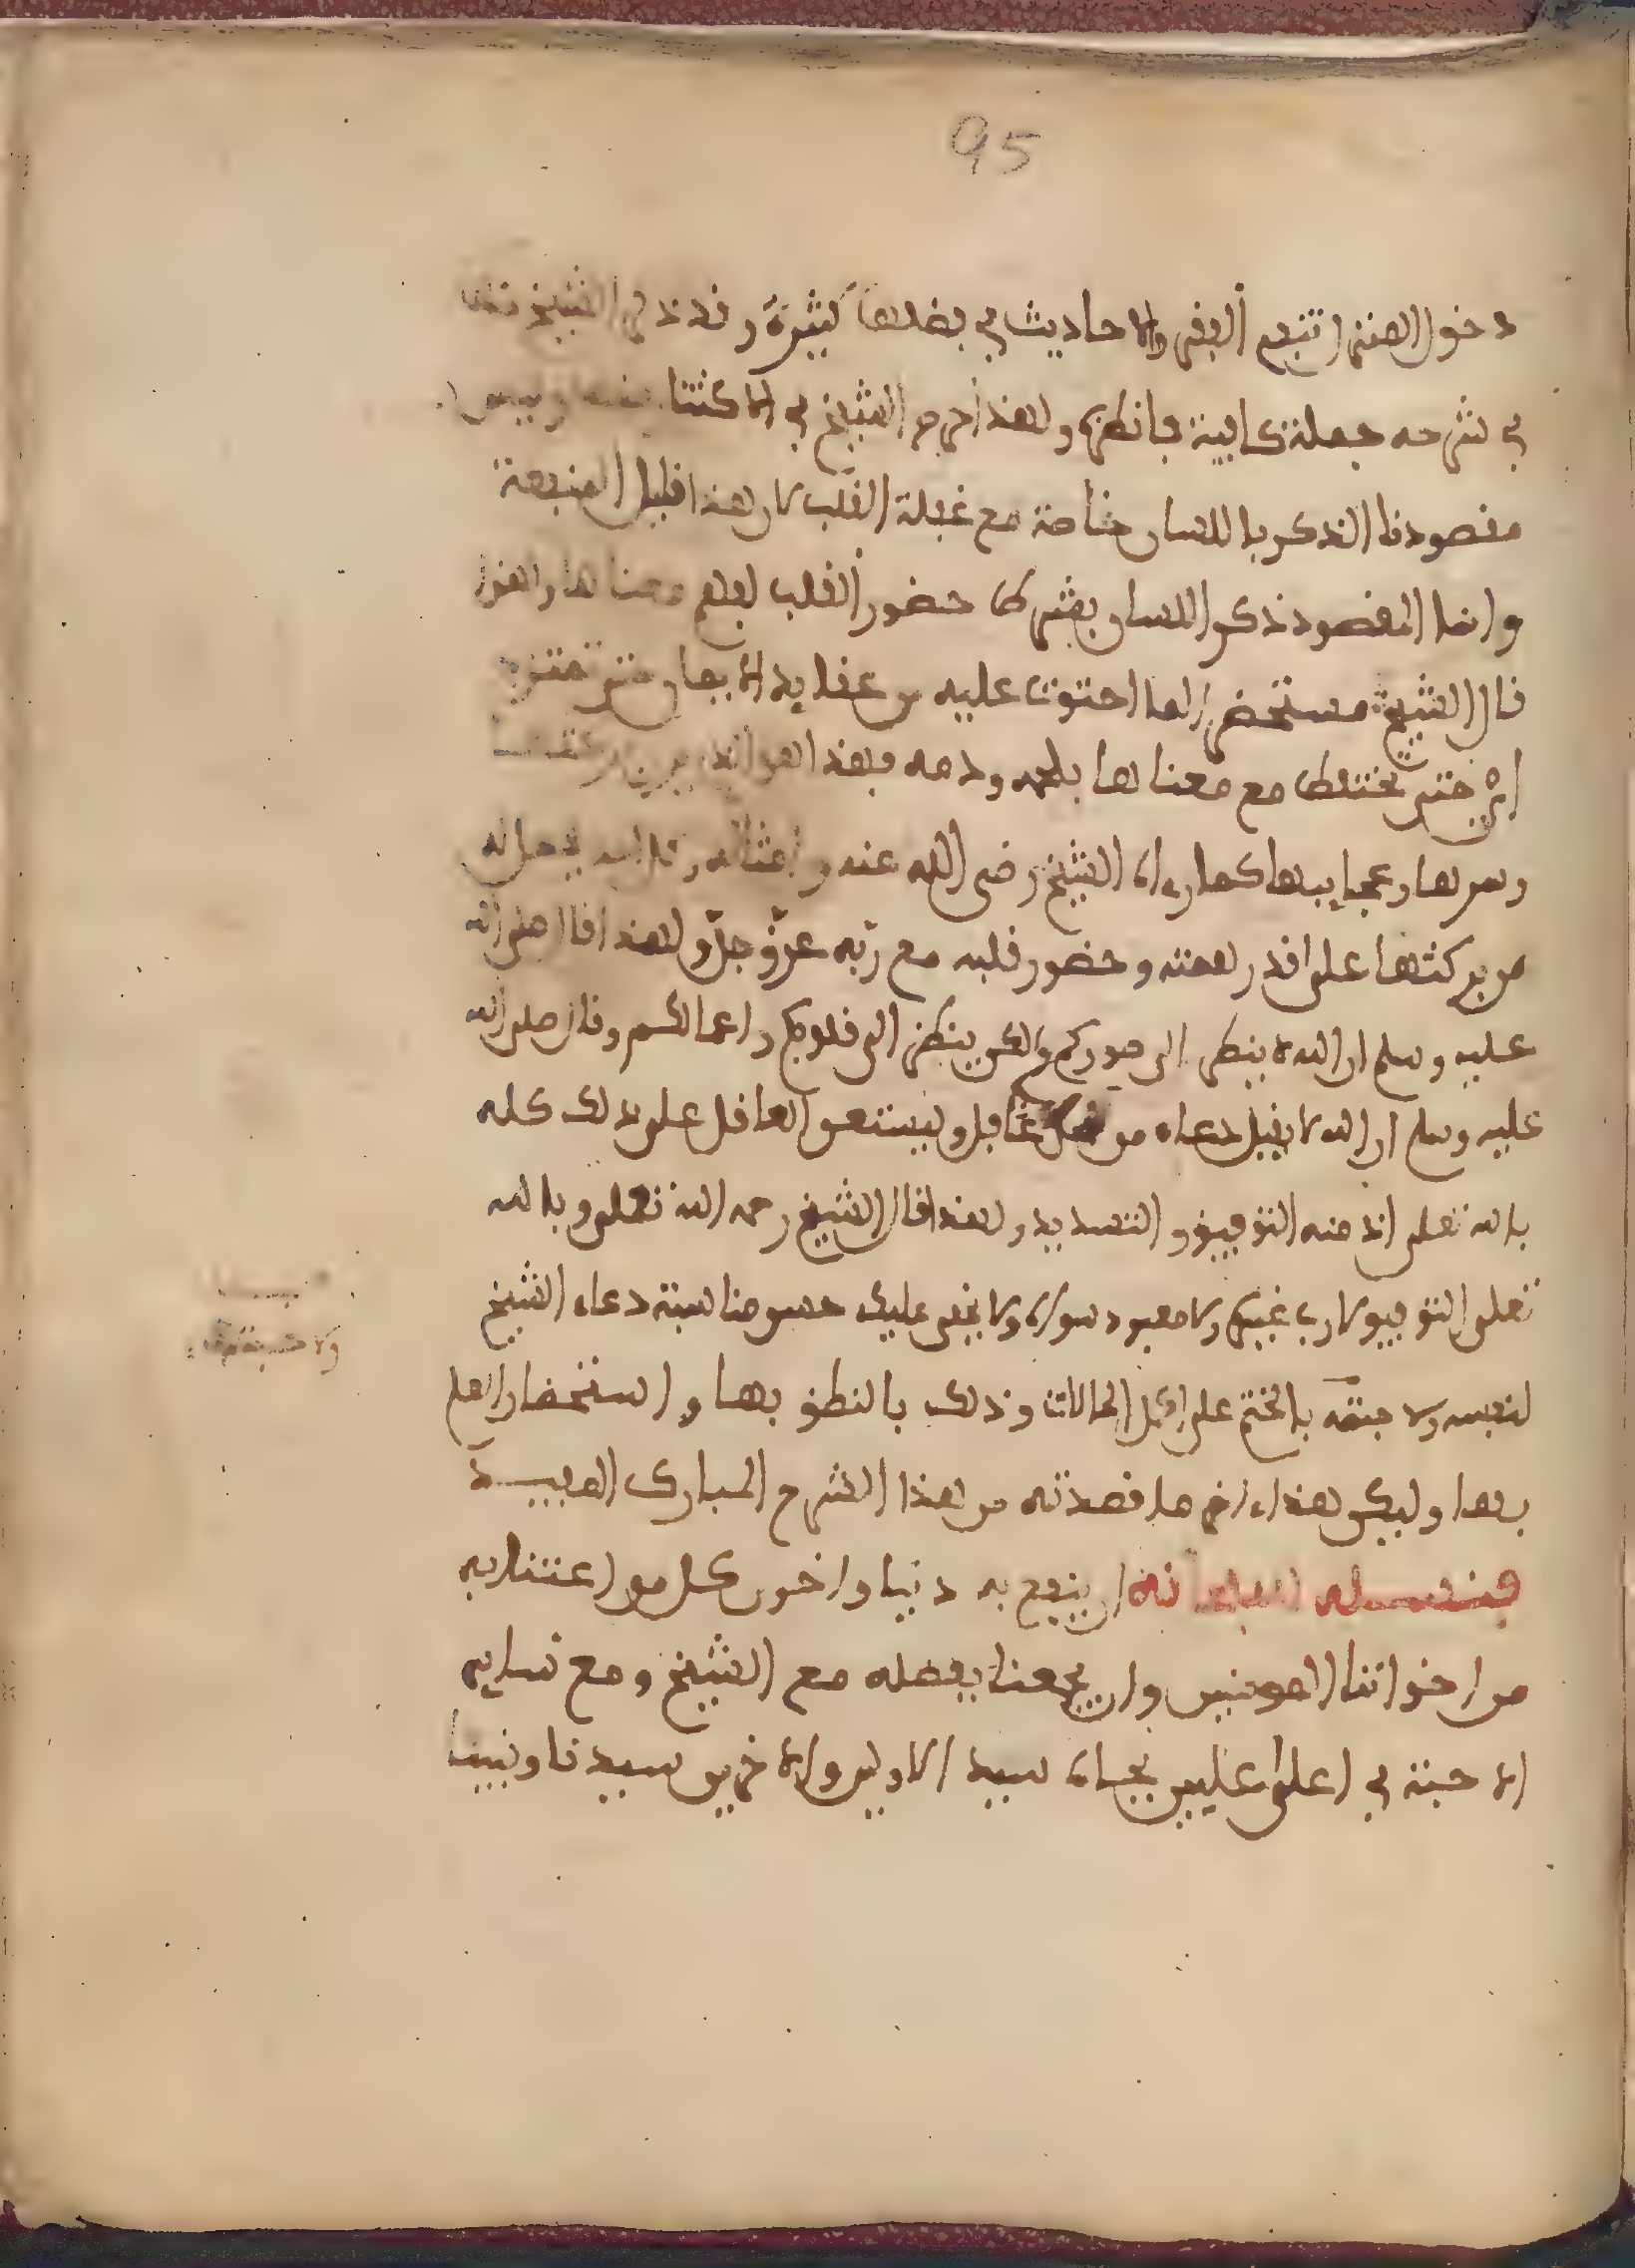 95
دخول الجنة او تنفع الفقر والاحاديث في فضلها كثيرة وقد ذكر الشيخ
في شرحه جملة كافية فانظره ولهذا الشيخ في الاكثار منها وليس
مقصودنا الذكر باللسان خاصة مع غفلة القلب لان هذا قليل المنفعة
وانما المقصود ذكر اللسان بشرط حضور القلب لفهم معناها ولهذا
قال الشيخ مستحضرا لما احتوت عليه من عقايد الايمان حتى تمتزج
اي حتى تختلط مع معناها بلحمه ودمه فبهذا
وسرها وعجايبها كما رءاه الشيخ رضي الله عنه وامثاله وكل احد يحصل له
من بركتها على قدر همته وحضور قلبه مع ربه عز وجل ولهذا قال صلى الله
عليه وسلم ان الله لا ينظر الى صوركم ولكن ينظر الى قلوبكم واعمالكم وقال صلى الله
عليه وسلم ان الله لا يقبل دعاء من غافل وليستعن العاقل على ذلك كله
بالله تعلى اذ منه التوفيق والتسديد ولهذا قال الشيخ رحمه الله تعلى وبالله
تعلى التوفيق لا رب غيره ولا معبود سواه ولا يخفى عليك حسن مناسبة دعاء الشيخ
لنفسه ولاحبته بالختم على اكمل الحالات وذلك بالنطق بها واستحضار العلم
بها وليكن هذا ءاخر ما قصدته من هذا الشرح المبارك المفيد
فنسئله سبحانه ان ينفع به دنيا واخرى كل من اعتنا به
من اخواننا المومنين وان يجمعنا بفضله مع الشيخ ومع ساير
الاحبة في اعلى عليين بجاه سيد الاولين والاخرين سيدنا ونبينا
ولاحبته